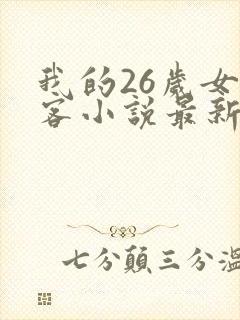 我的26歲女
客小說最新
七分顛三分溫